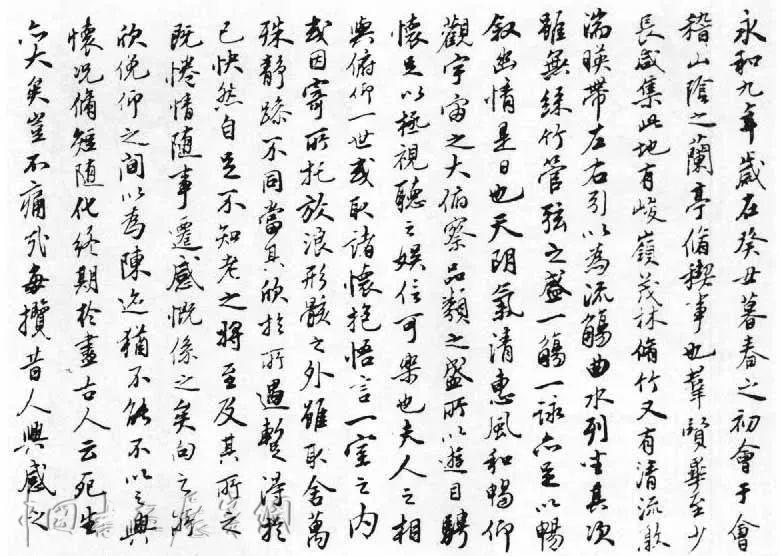 永和九年歲在癸丑暮春之初會于會
稽山陰之蘭亭脩稧事也羣賢畢至少
長咸集此地有峻嶺茂林脩竹又有清流激
湍暎帶左右引以為流觴曲水列坐其次
雖無絲竹管弦之盛一觴一詠亦足以暢
叙幽情是日也天朗氣清惠風和暢仰
觀宇宙之大俯察品類之盛所以遊目騁
懷足以極視聽之娛信可樂也夫人之相
與俯仰一世或取諸懷抱悟言一室之内
或因寄所托放浪形骸之外雖取舍萬
殊靜躁不同當其欣於所遇蹔得於
己快然自足不知老之將至及其所之
既惓情随事遷感慨係之矣向之所
欣俛仰之間以為陳迹猶不能不以之興
懷況脩短随化終期於盡古人云死生
亦大矣豈不痛哉每攬昔人興感之